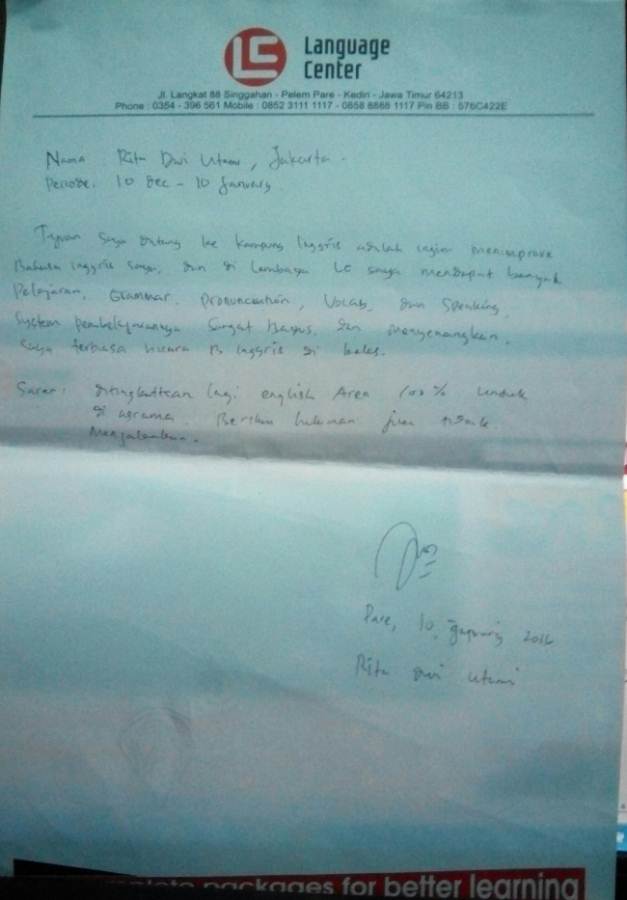 LC
Language
Center
Jl. Langkat 88 Singgahan - Pelem Pare - Kediri - Jawa Timur 64213
Phone : 0354 - 396 561 Mobile : 0852 3111 1117 - 0858 8868 1117 Pin BB : 576C422E
Nama : Rita Dwi Utami, Jakarta.
Periode. 10 Dec - 10 January
Tujuan saya datang ke kampung Inggris adalah ingin mengimprove
Bahasa inggris saya, dan di Lembaga LC saya mendapat banyak
Pelajaran, Grammar, Pronunciation, Vocab, dan Speaking,
System pembelajarannya Sangat bagus, dan menyenangkan.
Saya terbiasa bicara B. Inggris di kelas.
Saran : ditingkatkan lagi english Area 100% untuk
di asrama. Berikan hukuman jika tidak
Menjalankan.
Pare, 10, January 2016
Rita Dwi Utami
packages for better learning